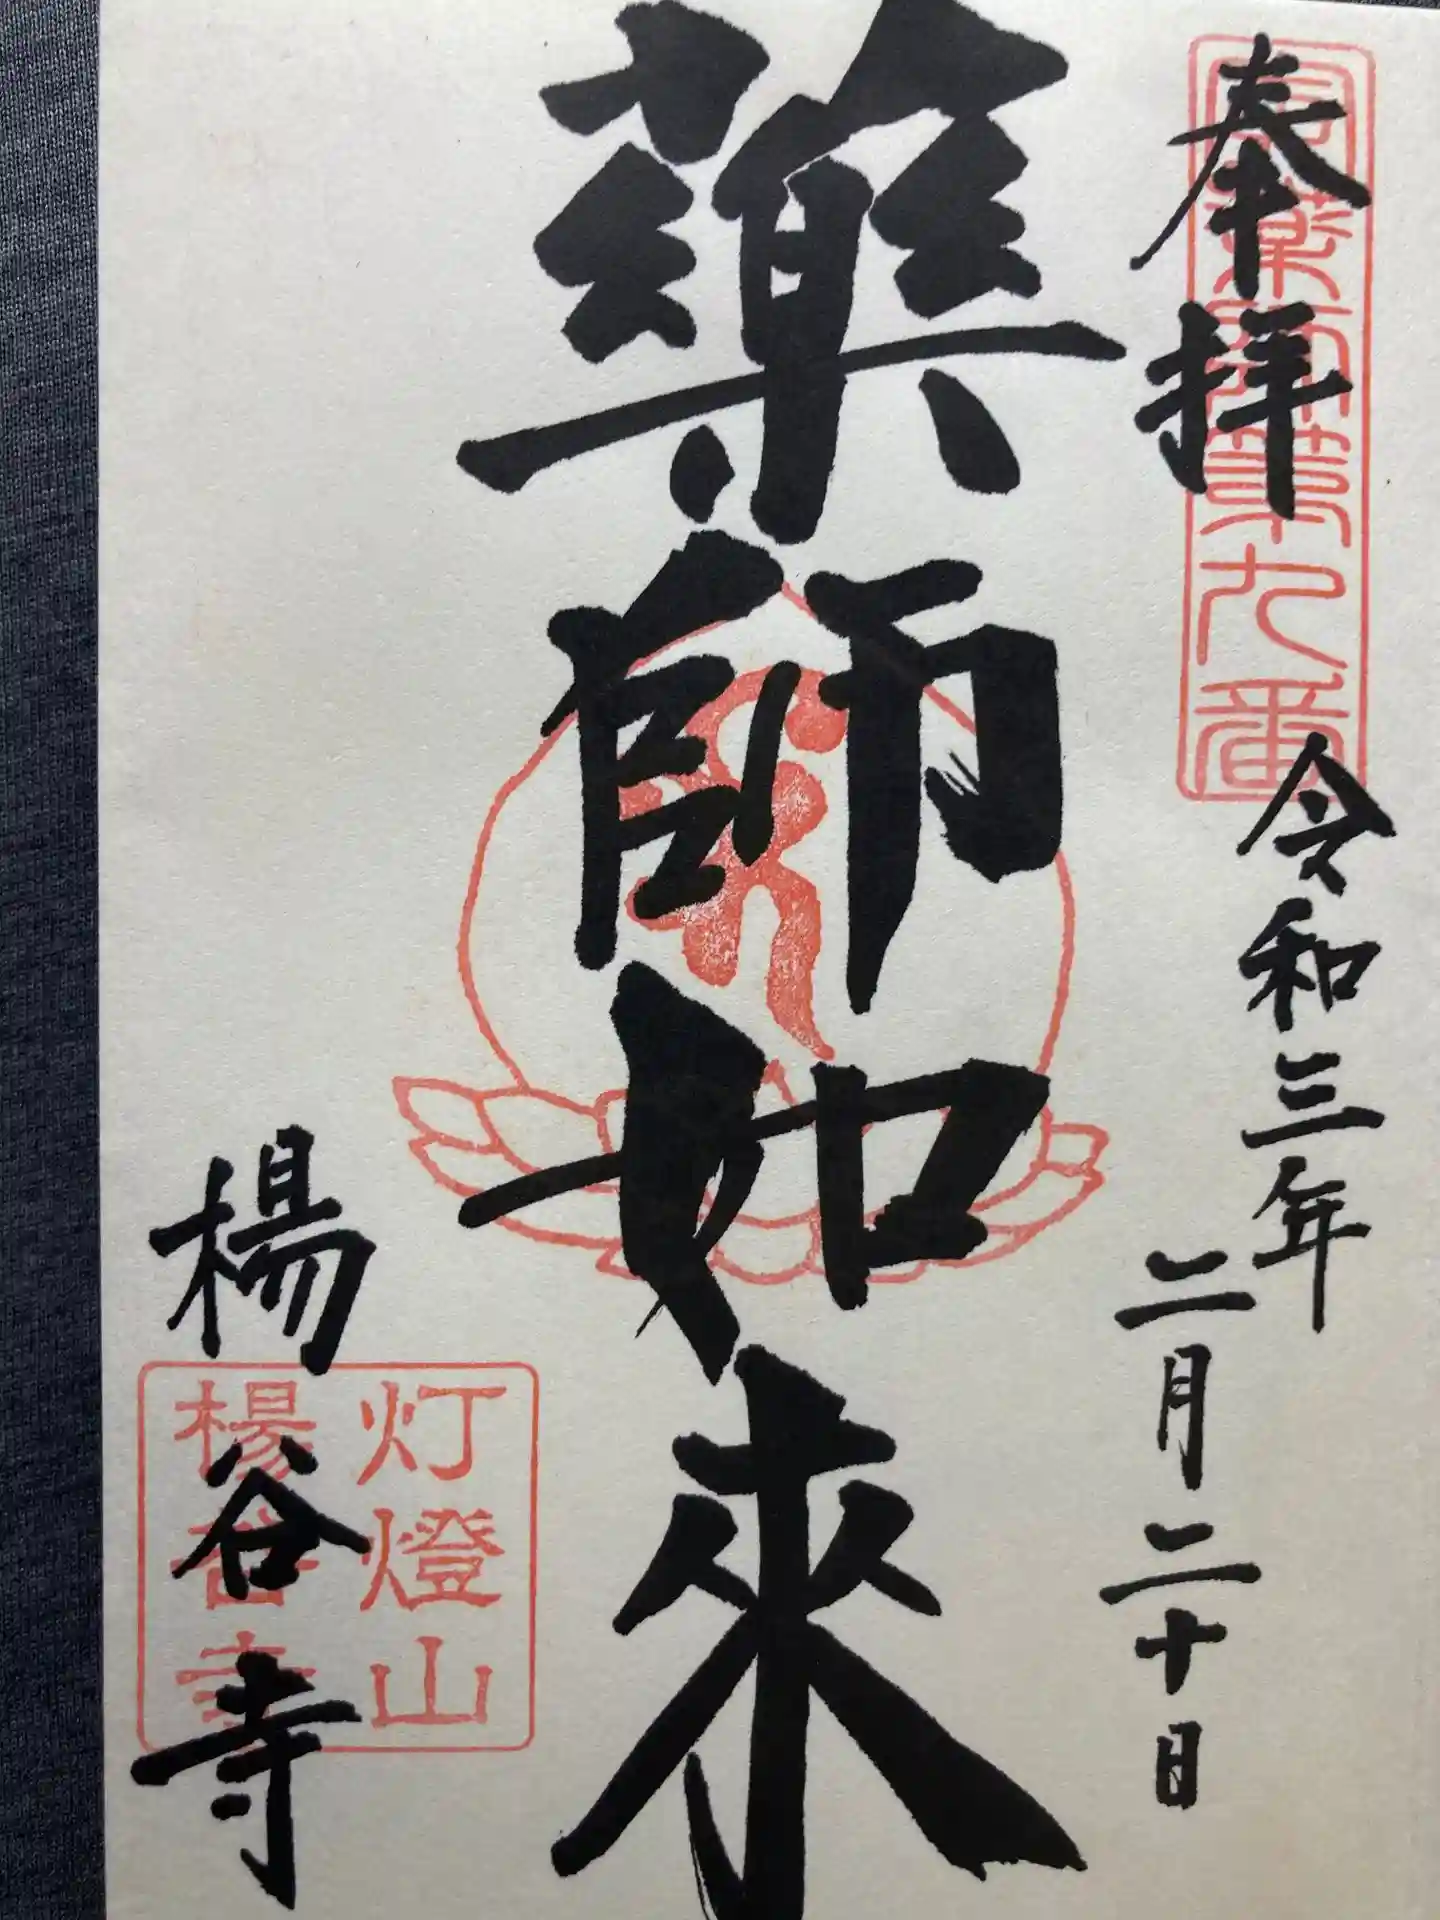 奉拝
令和三年
二月二十日
薬師如来
楊谷寺
灯燈山
楊谷寺